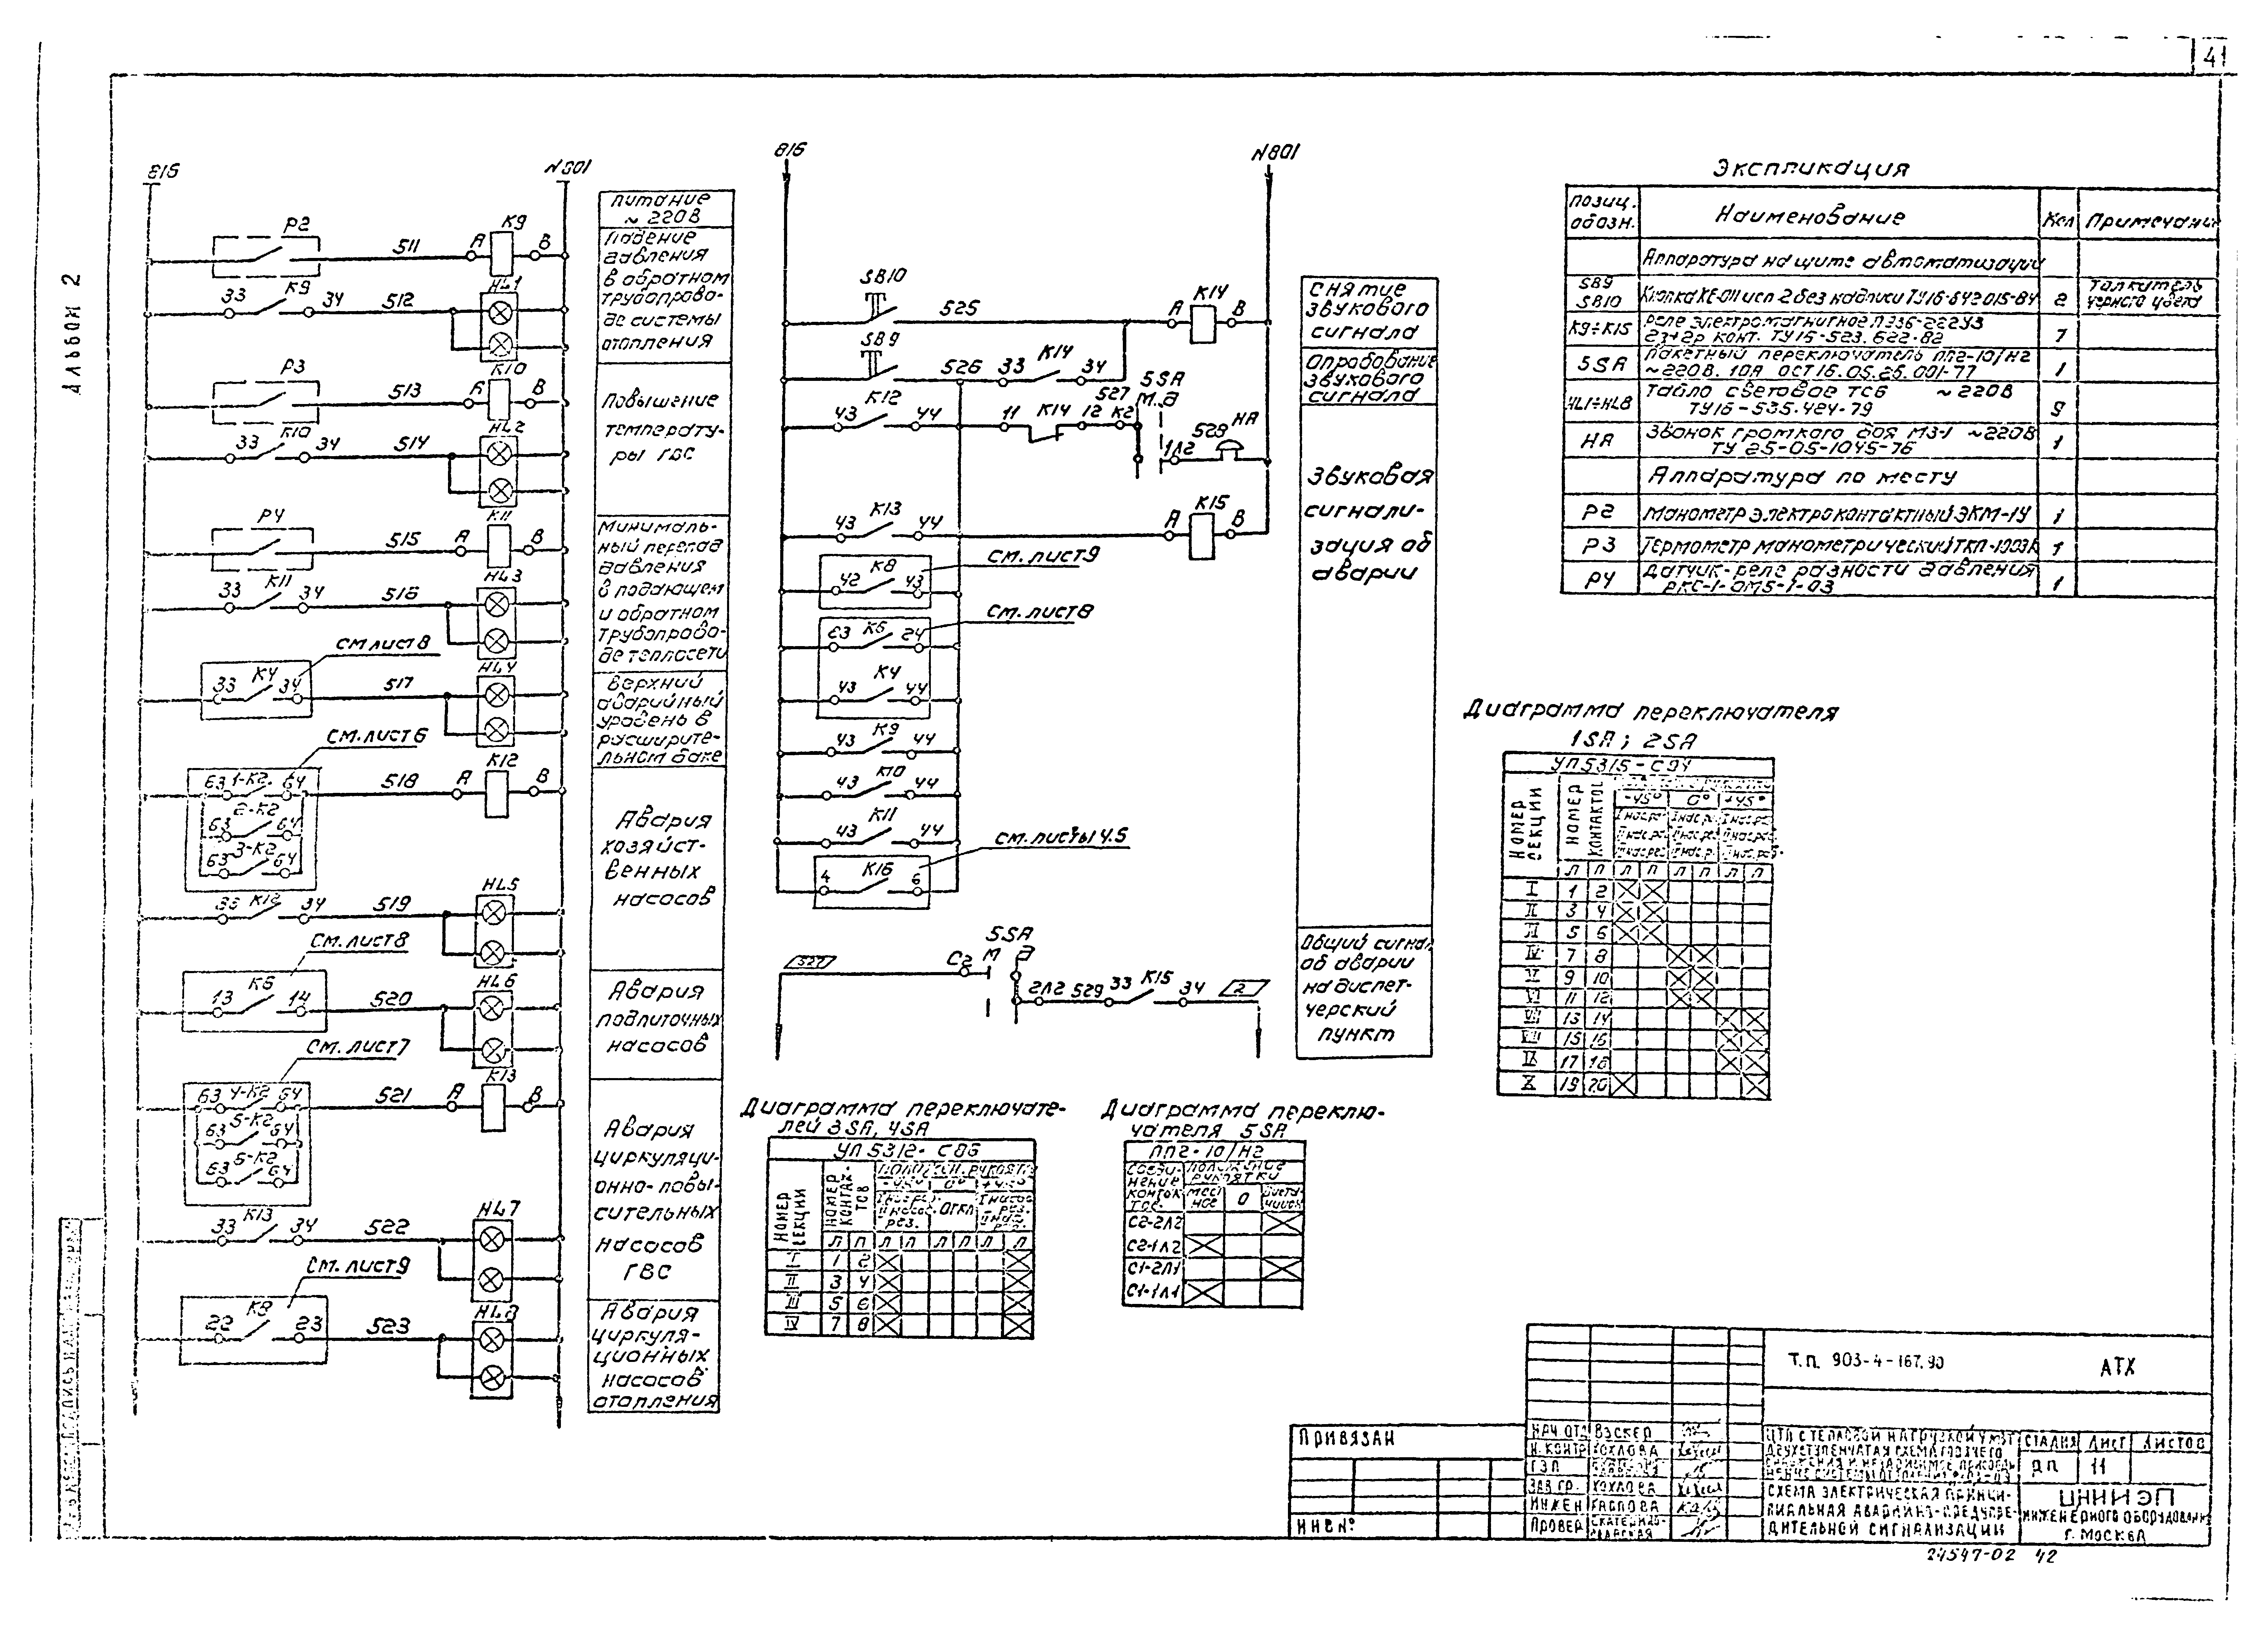 41
Альбом 2
816
N801
Р2
511
А
К9
В
33
К9
34
512
HL1
Р3
513
А
К10
В
33
К10
34
514
HL2
Р4
515
А
К11
В
33
К11
34
516
HL3
см лист 8
33
К4
34
517
HL4
см. лист 6
63
1-К2
64
518
А
К12
В
63
2-К2
64
63
3-К2
64
33
К12
34
519
HL5
см. лист 8
13
К6
14
520
HL6
см. лист 7
63
4-К2
64
521
А
К13
В
63
5-К2
64
63
6-К2
64
33
К13
34
522
HL7
см. лист 9
22
К8
23
523
HL8
питание
~220В
Падение
давления
в обратном
трубопрово-
де системы
отопления
Повышение
температу-
ры ГВС
Минималь-
ный перепад
давления
в подающем
и обратном
трубопрово-
де теплосети
Верхний
аварийный
уровень в
расширите-
льном баке
Авария
хозяйст-
венных
насосов
Авария
подпиточных
насосов
Авария
циркуляци-
онно-повы-
сительных
насосов
ГВС
Авария
циркуля-
ционных
насосов
отопления
816
N801
SB10
525
А
К14
В
SB9
526
33
К14
34
5SA
43
К12
44
11
К14
12
К2
527
М.
Д
1Л2
528
НА
43
К13
44
А
К15
В
см. лист 9
42
К8
43
см. лист 8
К6
24
43
К4
44
43
К9
44
43
К10
44
43
К11
44
см. листы 4.5
4
К16
6
527
С2
5SA
М
Д
2Л2
529
33
К15
34
2
Снятие
звукового
сигнала
Опробование
звукового
сигнала
Звуковая
сигнали-
зация об
аварии
Общий сигнал
об аварии
на диспет-
черский
пункт
Экспликация
Позиц. обозн.
Наименование
Кол
Примечание
Аппаратура на щите автоматизации
SB9 SB10
Кнопка КЕ-011 исп 2 без надписи ТУ16-642015-84
2
Толкатель черного цвета
К9÷К15
Реле электромагнитное ПЭ36-222У3
2з+2р конт. ТУ16-523.622-82
7
5SA
Пакетный переключатель ПП2-10/Н2
~220В. 10А ОСТ16.05.26.001-77
1
HL1÷HL8
Табло световое ТСБ ~220В
ТУ16-535.424-79
9
НА
Звонок громкого боя МЗ-1 ~220В
ТУ 25-05-1045-76
1
Аппаратура по месту
Р2
Манометр электроконтактный ЭКМ-1У
1
Р3
Термометр манометрический
1
Р4
Датчик-реле разности давления
РКС-1-ОМ5-1-03
1
Диаграмма переключателя
1SA; 2SA
УП5315-С94
Номер секции
Номер контактов
-45°
0°
+45°
Л П Л П Л П
I 1 2
II 3 4
III 5 6
IV 7 8
V 9 10
VI 11 12
VII 13 14
VIII 15 16
IX 17 18
X 19 20
Диаграмма переключате-
лей 3SA, 4SA
УП 5312-С86
Номер секции
Номер контак-
тов
-45°
0°
+45°
Откл
Л П Л П Л П Л П
I 1 2
II 3 4
III 5 6
IV 7 8
Диаграмма переклю-
чателя 5SA
ПП2-10/Н2
Соеди-
нение
контак-
тов
Положение
рукоятки
мест-
ное
0
С2-2Л2
С2-1Л2
С1-2Л1
С1-1Л1
Привязан
Инв №
Т.п. 903-4-167.90
АТХ
Нач отд
Вэскер
Н. контр
Хохлова
ГЭП
Зав. гр.
Хохлова
Инжен
Провер
Схема электрическая принци-
пиальная аварийно-предупре-
дительной сигнализации
Стадия
Лист
Листов
11
ЦНИИЭП
инженерного оборудования
г. Москва
24547-02 42